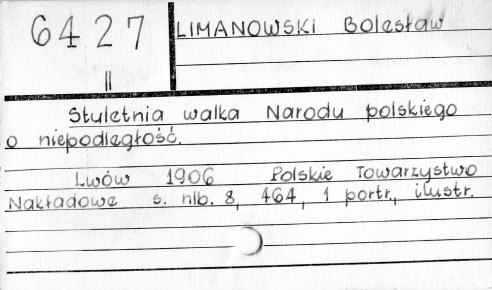 6427 LIMANOWSKI Bolesław
II
Stuletnia walka Narodu polskiego
o niepodległość.
Lwów 1906 Polskie Towarzystwo
Nakładowe s. nlb. 8, 464, 1 portr., ilustr.